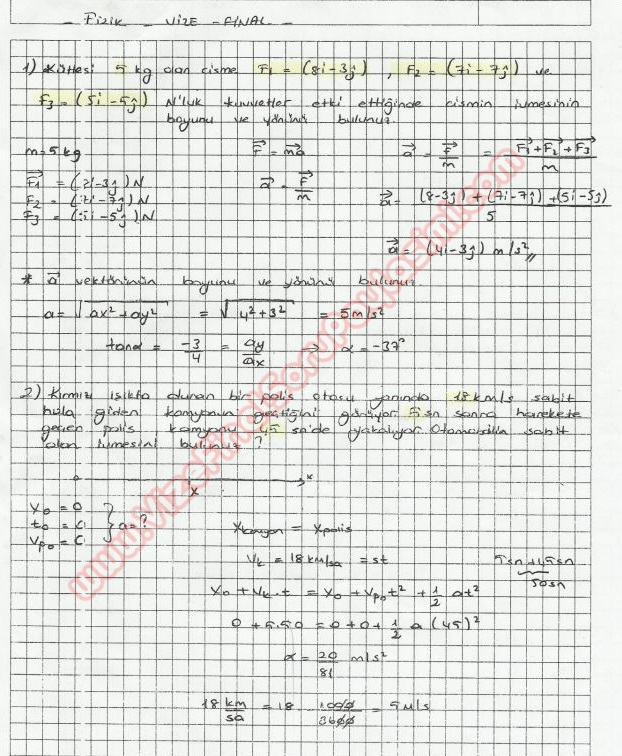 Fizik - VİZE - FİNAL -
1) Kütlesi 5 kg olan cisme F1 = (8i-3j) , F2 = (7i-7j) ve
F3 = (5i-5j) N'luk kuvvetler etki ettiğinde cismin ivmesinin
boyunu ve yönünü bulunuz.
m=5kg F = ma a = F/m = F1+F2+F3/m
F1 = (8i-3j)N a = F/m a = (8-3j) + (7i-7j) + (5i-5j)/5
F2 = (7i-7j)N
F3 = (5i-5j)N
a = (4i-3j) m/s²
* a vektörünün boyunu ve yönünü bulunuz.
a = √ax²+ay² = √4²+3² = 5m/s²
tanα = -3/4 = ay/ax → α = -37°
2) Kırmızı ışıkta duran bir polis otosu yanında 18km/s sabit
hızla giden kamyonun geçtiğini görüyor 5sn sonra harekete
geçen polis kamyonu 45 sn'de yakalıyor. Otomobilin sabit
olan ivmesini bulunuz?
x
x
x0 = 0
t0 = 0
vp0 = 0 } a = ?
xkamyon = xpolis
Vk = 18km/sa = st 5sn+45sn
50sn
x0 + Vk.t = x0 + Vp0t² + 1/2 at²
0 + 5.50 = 0+0+ 1/2 a (45)²
α = 20/81 m/s²
18 km/sa = 18 1000/3600 = 5M/s
www.VizeFinalSoruPaylasimi.com